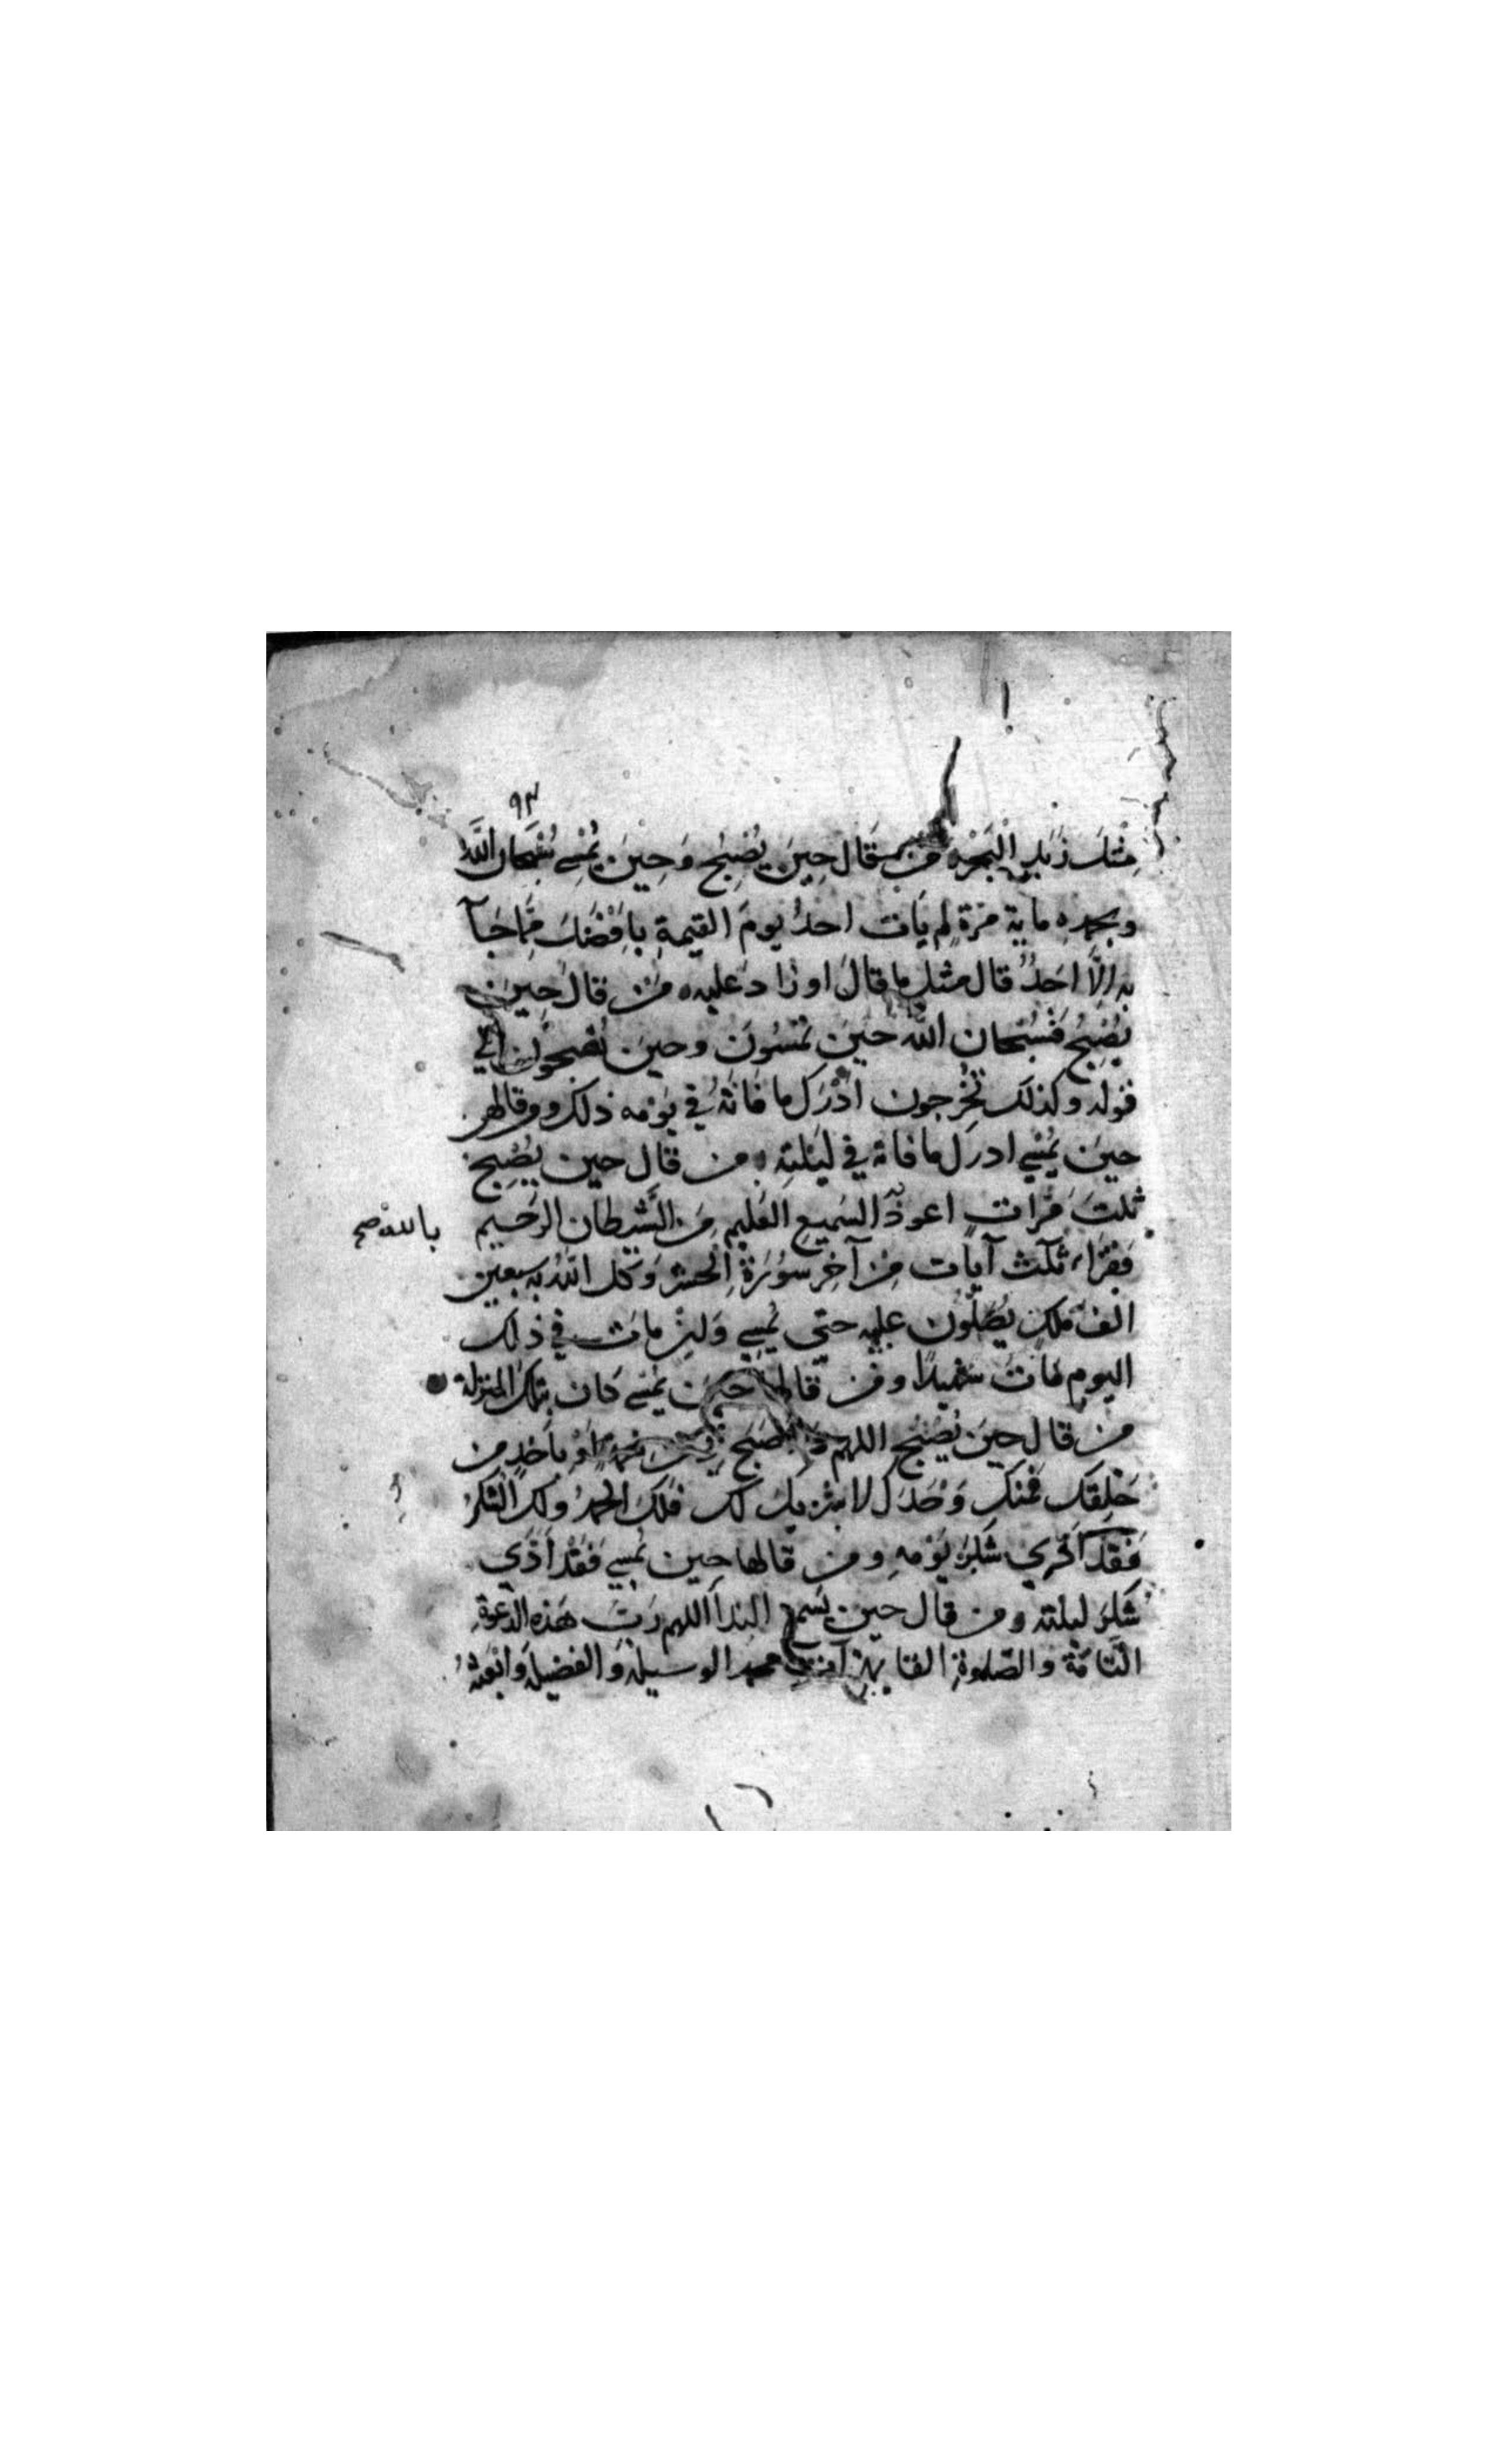 ٩٣
مِثْلَ زَبَدِ الْبَحْرِ ٥ مَنْ قَالَ حِينَ يُصْبِحُ وَحِينَ يُمْسِي سُبْحَانَ اللَّهِ
وبحمدِه ماية مَرّةٍ لم يَات احدٌ يومَ القيمةِ بِاَفْضَلَ مِمَّا جَآ
بهِ اِلَّا احَدٌ قال مثل ما قالَ او زادَ عليه ٥ مَنْ قالَ حِينَ
يُصْبِحُ فَسُبْحَان اللّه حينَ تُمْسُونَ وحينَ تُصبحُونَ الي
قوله وكذلك تُخْرجون ادْرَكَ ما فاتهُ في يَوْمه ذلك ومن قالهن
حينَ يُمْسِي ادرَكَ ما فاتهُ في لَيْلَتِه ٥ من قال حين يُصْبِحُ
ثلثَ مَرّاتٍ اعوذُ السَمِيعِ العَليمِ مِنَ الشَّيطان الرَجيم
بالله صح
فَقَرَاء ثلٰث آيات مِنْ آخِر سُورَةِ الْحشر وَكّل اللّهُ به سبعين
الفَ مَلَكٍ يُصَلُّون عليه حتى يُمْسِي وَاِنْ مات في ذلك
اليوم مات شهيدًا ومَن قالها حينَ يُمْسِي كان بتلك المنزلة
من قال حينَ يُصْبِح اللهم ما اَصْبَحَ بي مِنْ نعمةٍ اَوْ بِاَحَدٍ من
خَلْقِكَ فَمنك وَحْدَكَ لا شريك لك فَلَكَ الحمدُ ولك الشكرُ
فَقَدْ ادّي شكرَ يَوْمهِ ومن قالها حِين يُمْسِي فَقَدْ اَدّي
شكرَ ليلته ومن قال حينَ يَسمع النداَ اللهم رَبَّ هَذه الدعوةِ
التّامّة والصّلوةِ القايمةِ آتِ محمد الوسيلةَ والفضيلَة وابْعَثْهُ